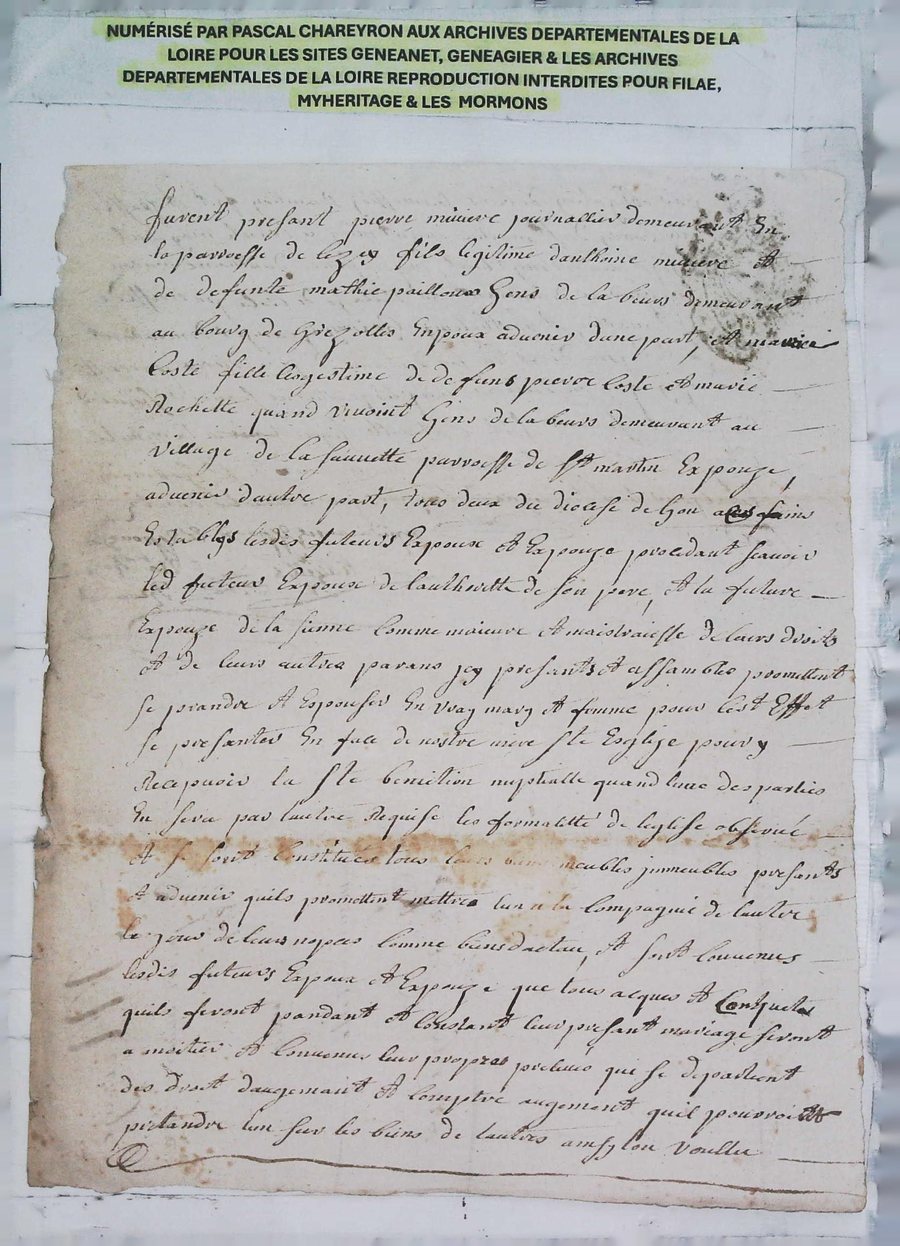 NUMÉRISÉ PAR PASCAL CHAREYRON AUX ARCHIVES DEPARTEMENTALES DE LA
LOIRE POUR LES SITES GENEANET, GENEAGIER & LES ARCHIVES
DEPARTEMENTALES DE LA LOIRE REPRODUCTION INTERDITES POUR FILAE,
MYHERITAGE & LES MORMONS
furent presant pierre journallier demeurant En
la parroesse de fils legitime danthoine et
de defunte mathie pailloux gens de labeurs demeurant
au bourg de Grezolles Enpoux aduenir dune part, et marie
Coste fille legestime de defuns pierre Coste et marie
Rochette quand vivoint gens de labeurs demeurant au
village de la parroesse de St martin Expouze,
aduenir dautre part, tous deux du diocise de Lyon
Establys lesdis futeurs Expoux et Expouze procedant scauoir
led futeur Expoux de lauthoritte de son pere, et la future
Expouze de la sienne comme maieure et maistraesse de leurs droits
et de leurs autres parans jcy presants et assambles promettent
se prandre et Espouser En vray mary et femme pour cest Effet
se presanter En face de nostre mere Ste Esglize pour y
Recepuoir la Ste benition nuptialle quand lune des parties
En sera par lautre Requise les formalitté de leglise obserué
et se sont Constitués tous leurs meubles jmmeubles presants
et aduenir quils promettent mettre lun a la Compagnie de lautre
le jour de leurs nopces comme biens et sont Conuenus
lesdis futeurs Expoux et Expouze que tous acques et Conquets
quils feront pandant et Constant leur presant mariage seront
a moitier et Conuenus leur propres preleué qui se departent
des droit daugemant et Comptre augement quil pouroitt
pretandre lun sur les biens de lautres voullu